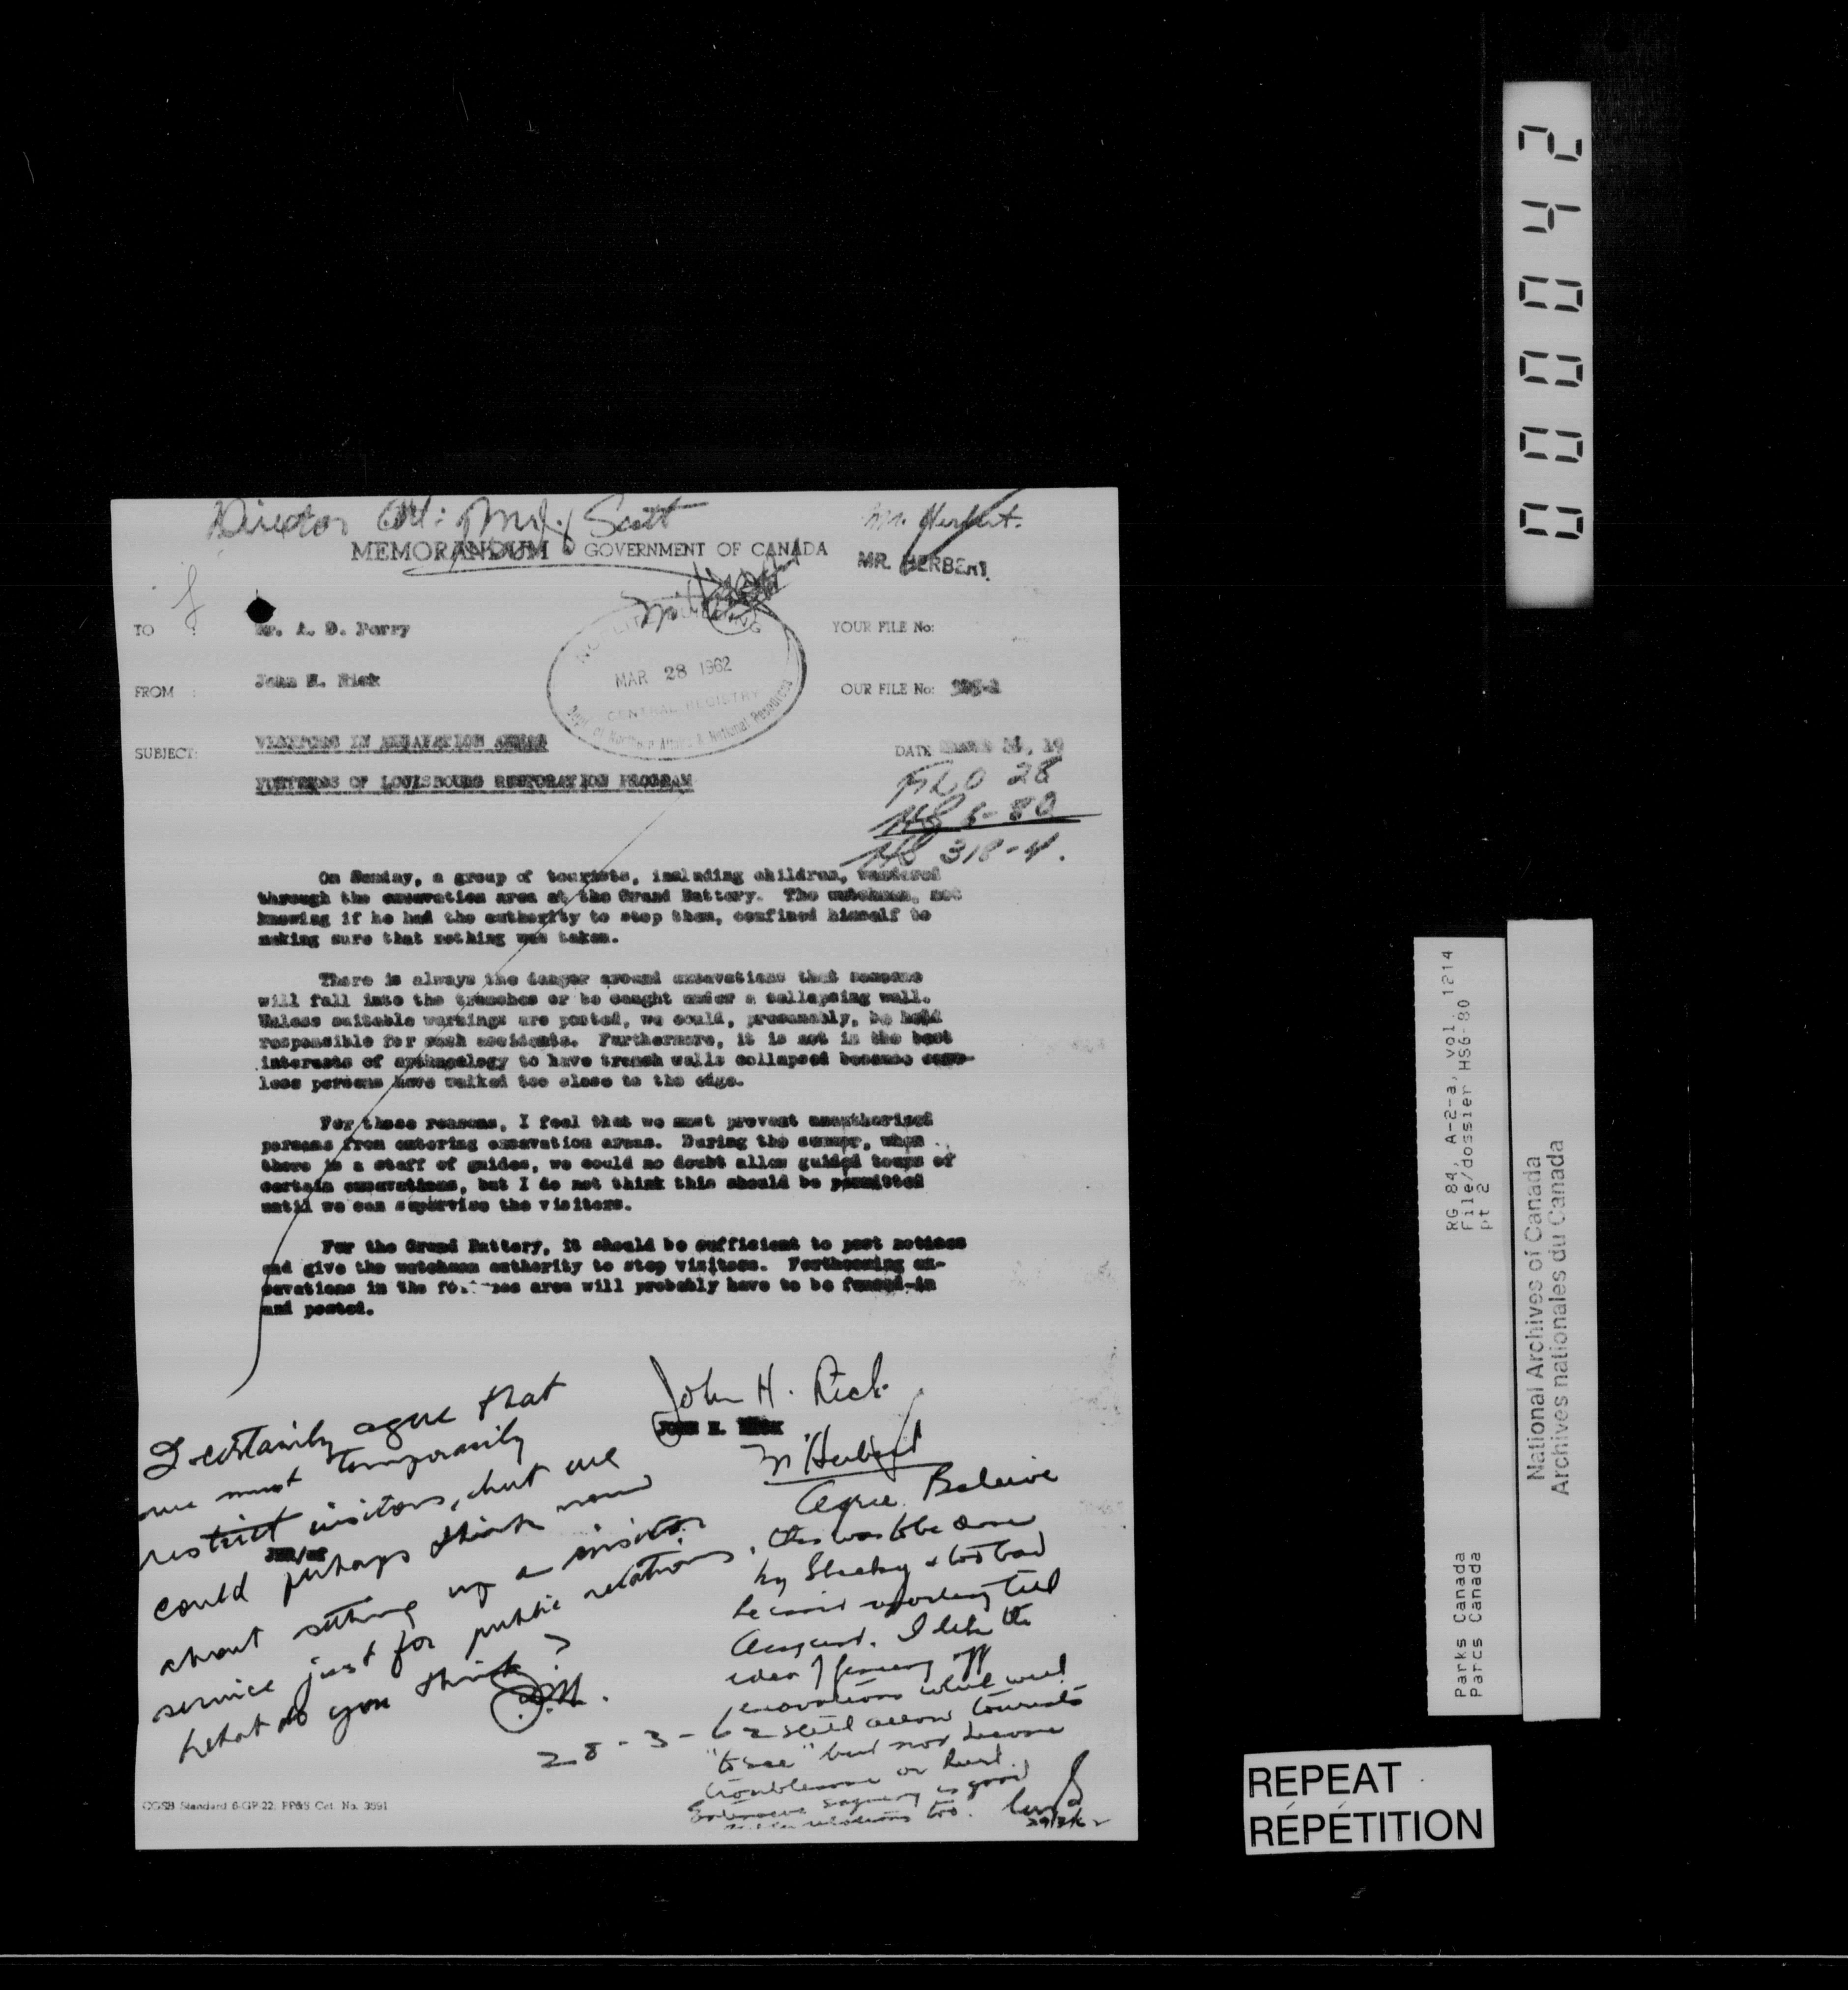 Director Att: Mr. Scott
Mr. Herbert.
MEMORANDUM GOVERNMENT OF CANADA
MR. HERBERT
TO :
Mr. A. D. Perry
YOUR FILE No:
NORLITE BUILDING
MAR 28 1962
CENTRAL REGISTRY
Dept of Northern Affairs & National Resources
FROM :
John H. Rick
OUR FILE No:
SUBJECT:
VISITORS IN EXCAVATION AREAS
DATE March 19
FORTRESS OF LOUISBOURG RESTORATION PROGRAM
FLO 28
HS 6-80
HS 318-4.
On Sunday, a group of tourists, including children, wandered
through the excavation area at the Grand Battery. The watchman, not
knowing if he had the authority to stop them, confined himself to
making sure that nothing was taken.
There is always the danger around excavations that someone
will fall into the trenches or be caught under a collapsing wall.
Unless suitable warnings are posted, we could, presumably, be held
responsible for such accidents. Furthermore, it is not in the best
interests of archaeology to have trench walls collapsed because care-
less persons have walked too close to the edge.
For these reasons, I feel that we must prevent unauthorized
persons from entering excavation areas. During the summer, when
there is a staff of guides, we could no doubt allow guided tours of
certain excavations, but I do not think this should be permitted
until we can supervise the visitors.
For the Grand Battery, it should be sufficient to post notices
and give the watchman authority to stop visitors. Forthcoming ex-
cavations in the fortress area will probably have to be fenced-in
and posted.
John H. Rick
JOHN H. RICK
I certainly agree that
we must temporarily
restrict visitors, but we
JHR/
could perhaps think now
about setting up a visitor
service just for public relations.
What do you think?
28-3-62
Mr Herbert
Agree. Believe
this was to be done
by & too bad
he isn't reporting till
August. I like the
idea of fencing off
excavations which will
still allow tourists
"to see" but not become
troublesome or hurt.
is good
relations too.
29/3/62
CGSB Standard 6-GP-22, PP&S Cat. No. 3591
000042
RG 84, A-2-a, vol. 1214
File/dossier HS6-80
pt 2
Parks Canada
Parcs Canada
National Archives of Canada
Archives nationales du Canada
REPEAT
RÉPÉTITION